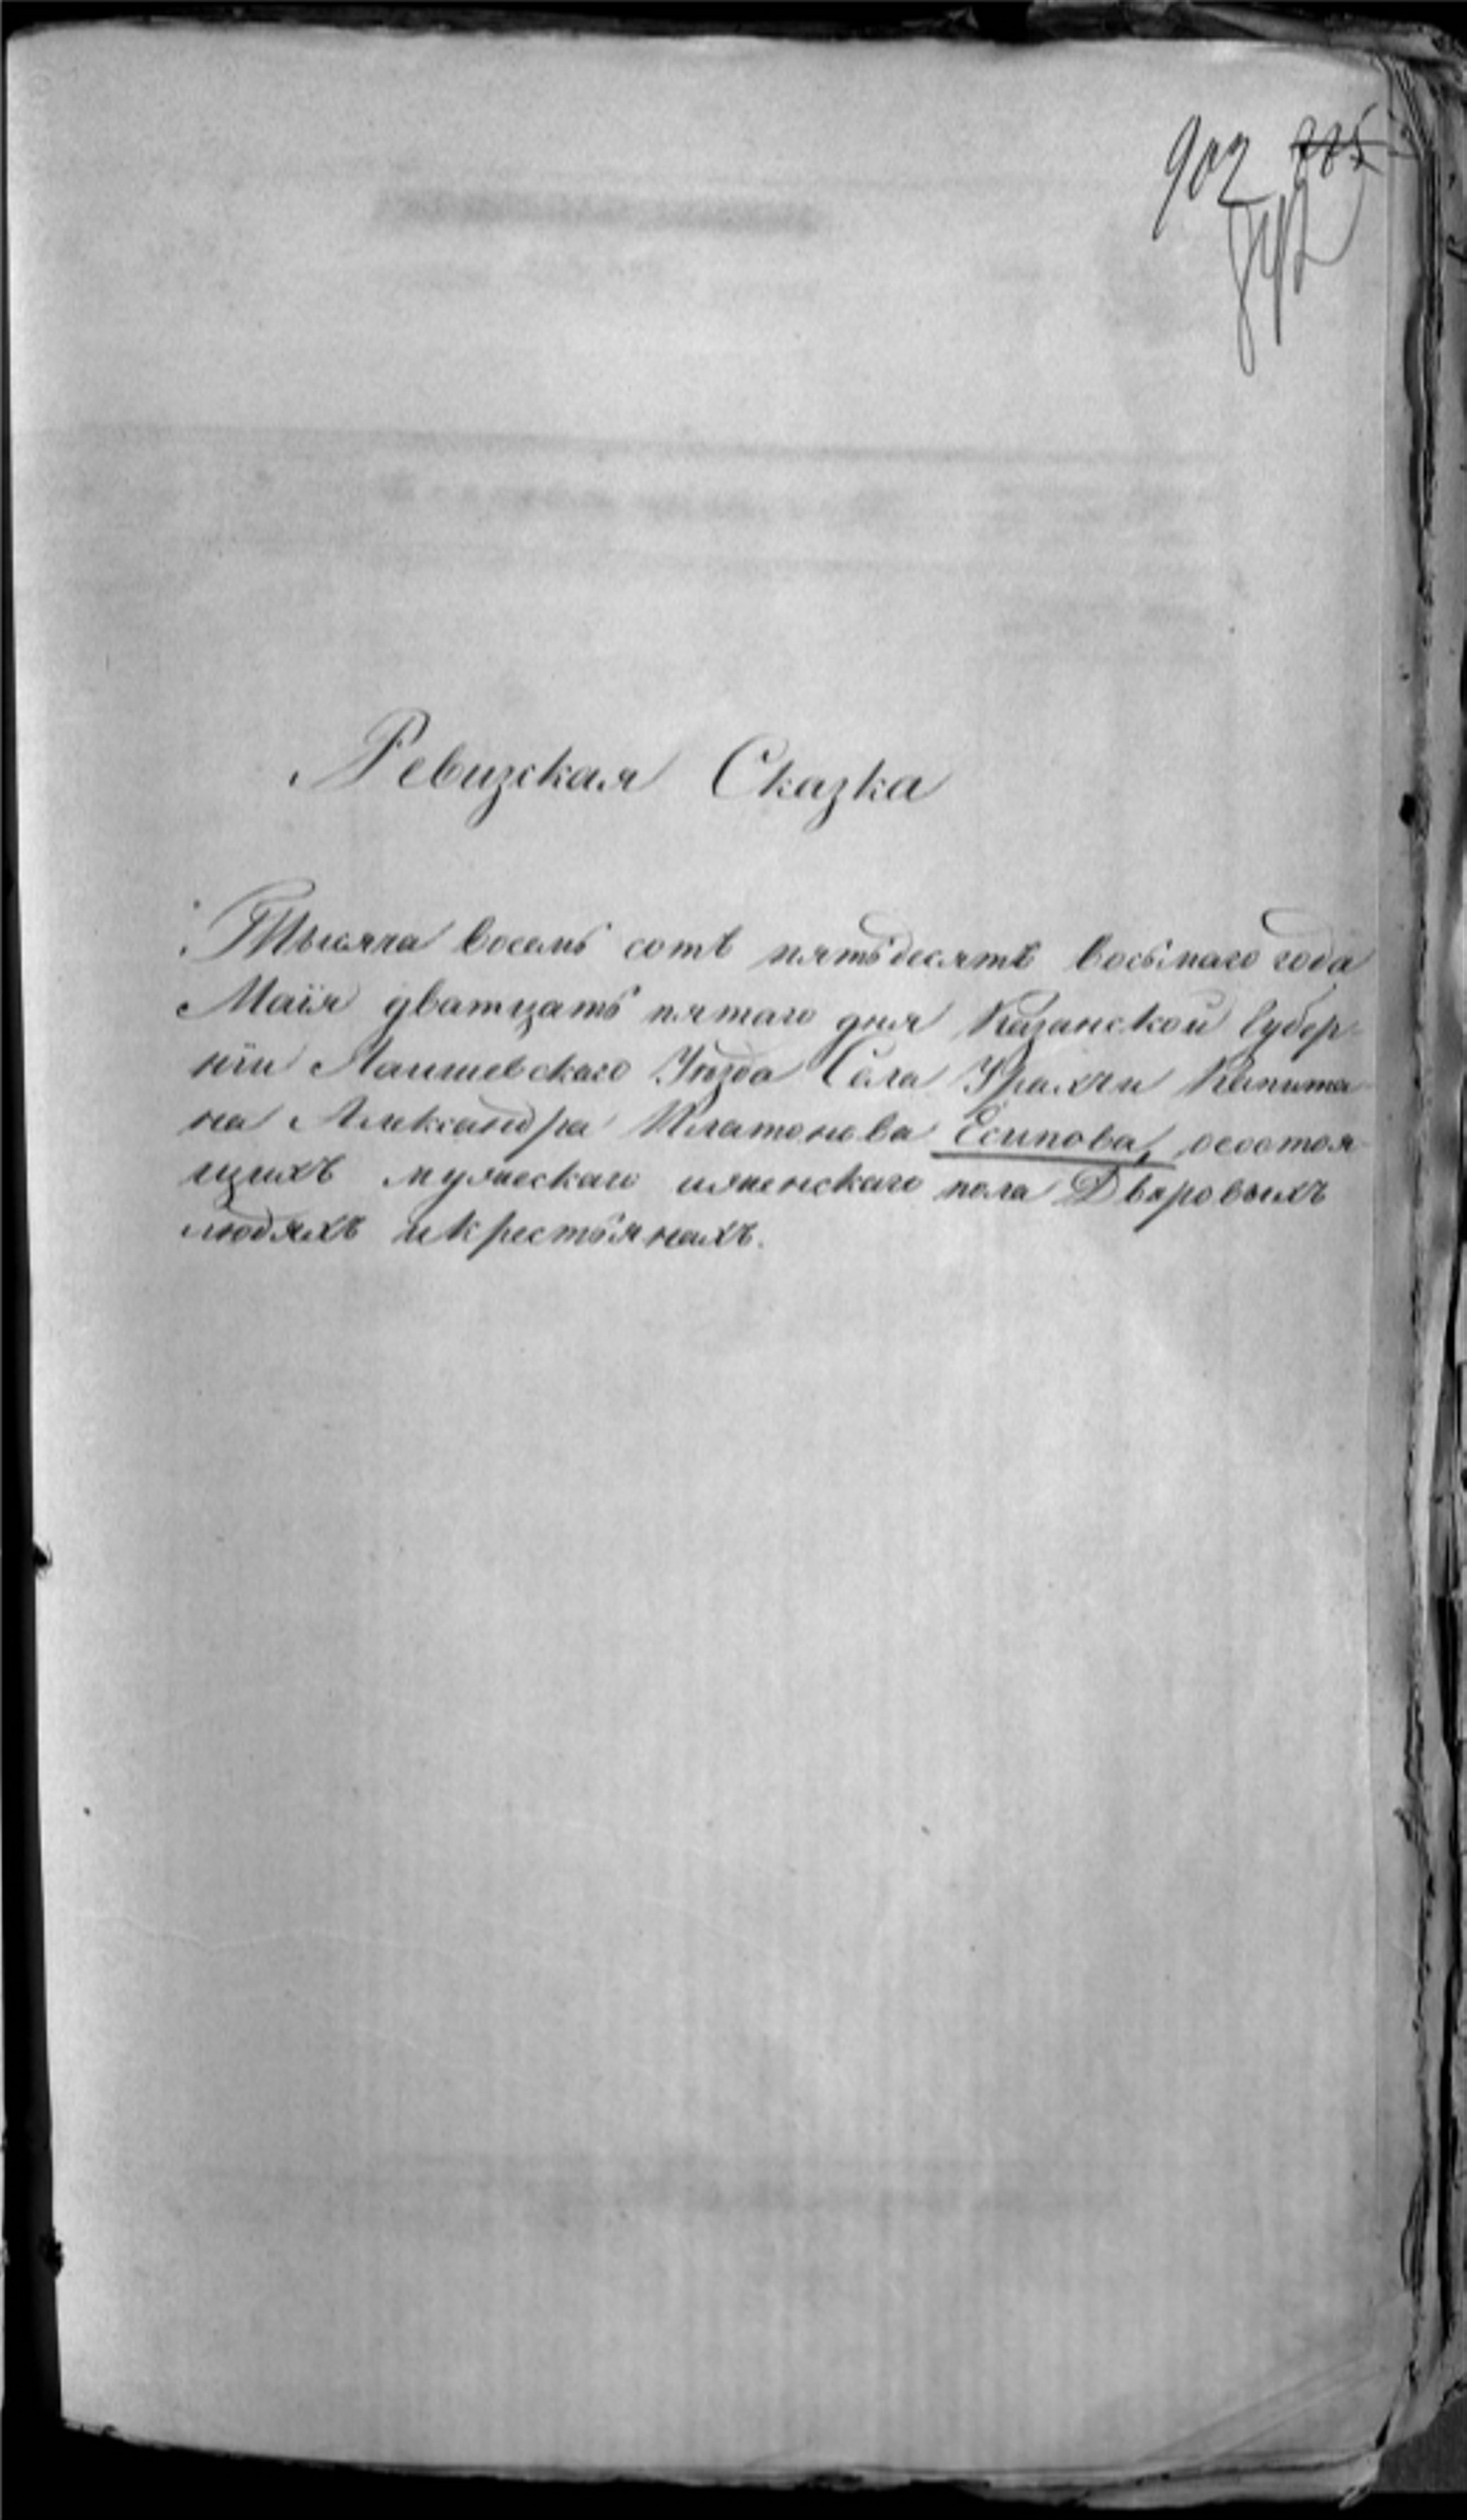 902 885
842
Ревизская Сказка
Тысяча восемь сотъ пятьдесятъ восьмаго года
Маія дватцать пятаго дня Казанской Губер-
ніи Лаишевскаго Уѣзда Села Урахчи Капита-
на Александра Платонова Есипова, осостоя-
щихъ мужескаго иженскаго пола Дворовыхъ
людяхъ икрестьянахъ.